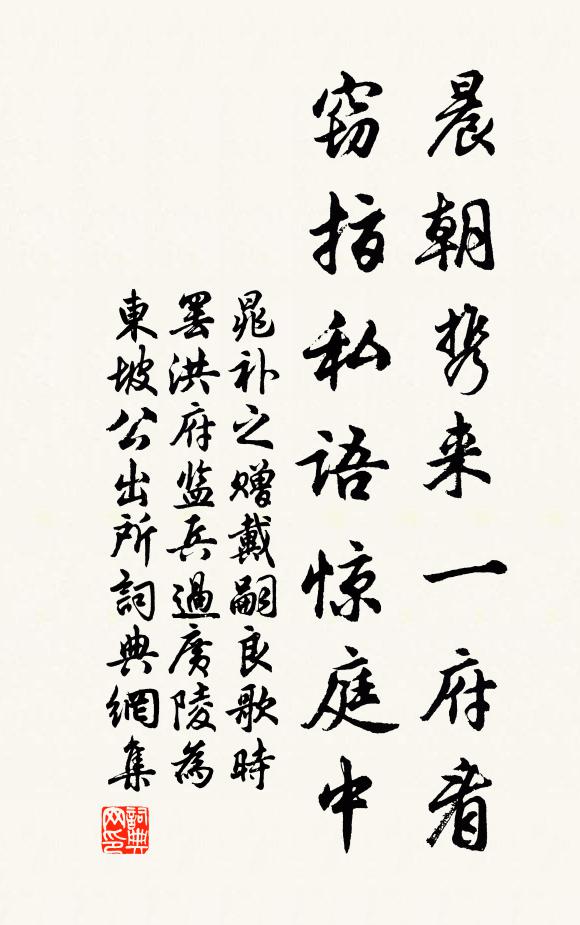 晨朝携来一府看
窃指私语惊庭中
晁补之赠戴嗣良歌时
罢洪府监兵過廣陵為
東坡公出所詞典網集
詞典
网印